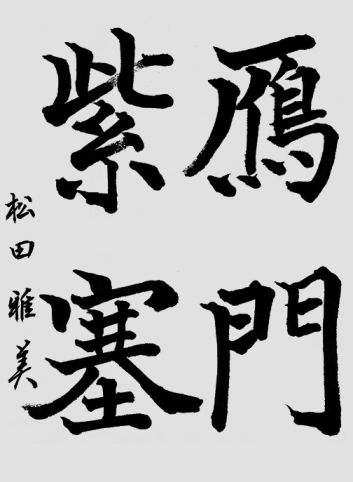 鴈門
紫塞
松田雅美